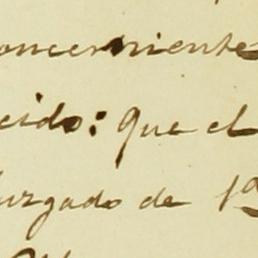 oncerniente
cido: que el
urgado de 1ª